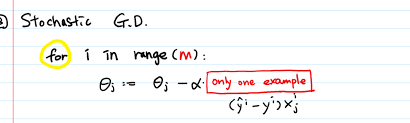 ③ Stochastic G.D.
for i in range(m):
θⱼ := θⱼ - α· only one example
(ŷⁱ - yⁱ)xⱼⁱ